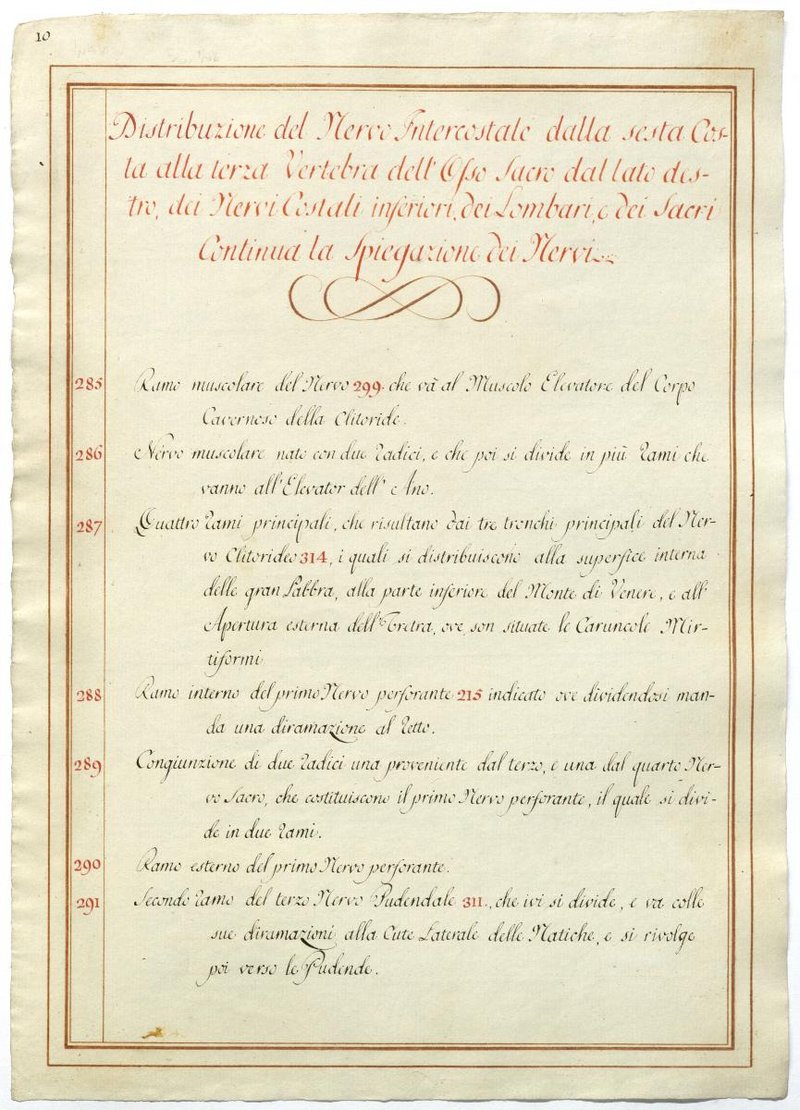 10
Distribuzione del Nervo Intercostale dalla sesta Cos-
ta alla terza Vertebra dell'Osso Sacro dal lato des-
tro, dei Nervi Costali inferiori, dei Lombari, e dei Sacri
Continua la Spiegazione dei Nervi
285 Ramo muscolare del Nervo 299. che và al Muscolo Elevatore del Corpo
Cavernoso della Clitoride.
286 Nervo muscolare nato con due radici, e che poi si divide in più rami che
vanno all'Elevator dell'Ano.
287 Quattro rami principali, che risultano dai tre tronchi principali del Ner-
vo Clitorideo 314, i quali si distribuiscono alla superfice interna
delle gran Labbra, alla parte inferiore del Monte di Venere, e all'
Apertura esterna dell'Uretra, ove son situate le Caruncole Mir-
tiformi
288 Ramo interno del primo Nervo perforante 215 indicato ove dividendosi man-
da una diramazione al retto.
289 Congiunzione di due radici una proveniente dal terzo, e una dal quarto Ner-
vo Sacro, che costituiscono il primo Nervo perforante, il quale si divi-
de in due rami.
290 Ramo esterno del primo Nervo perforante.
291 Secondo ramo del terzo Nervo Pudendale 311., che ivi si divide, e va colle
sue diramazioni alla Cute Laterale delle Natiche, e si rivolge
poi verso le Pudende.